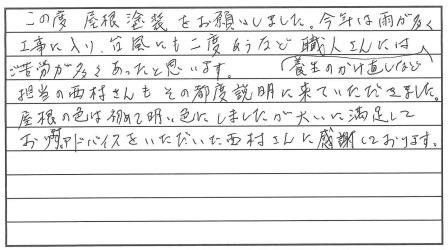 この度 屋根塗装をお願いしました。今年は雨が多く
工事に入り、台風にも二度あうなど 職人さんには
ご苦労が多くあったと思います。(養生のかけ直しなど)
担当の西村さんもその都度説明に来ていただきました。
屋根の色は初めて明い色にしましたが大いに満足して
おります。アドバイスをいただいた西村さんに感謝しております。